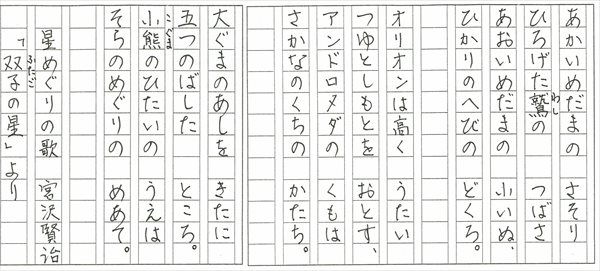 あかいめだまの　さそり
ひろげた鷲の　つばさ
わし
あおいめだまの　小いぬ、
ひかりのへびの　とぐろ。
オリオンは高く　うたい
つゆとしもとを　おとす、
アンドロメダの　くもは
さかなのくちの　かたち。
大ぐまのあしを　きたに
五つのばした　ところ。
小熊のひたいの　うえは
こぐま
そらのめぐりの　めあて。
星めぐりの歌　宮沢賢治
「双子の星」より
ふたご